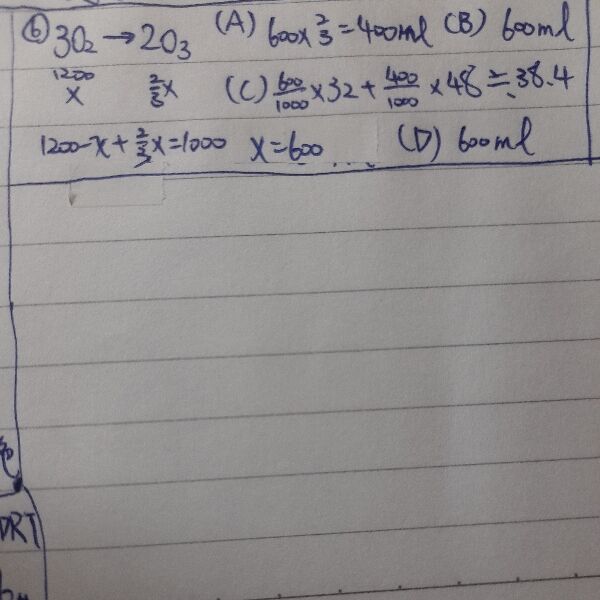 ⑥ 3O₂ → 2O₃ (A) 600 × 2/3 = 400ml (B) 600ml
1200
x 2/3x (C) 600/1000 × 32 + 400/1000 × 48 ≒ 38.4
1200 - x + 2/3x = 1000 x = 600 (D) 600ml
DRT